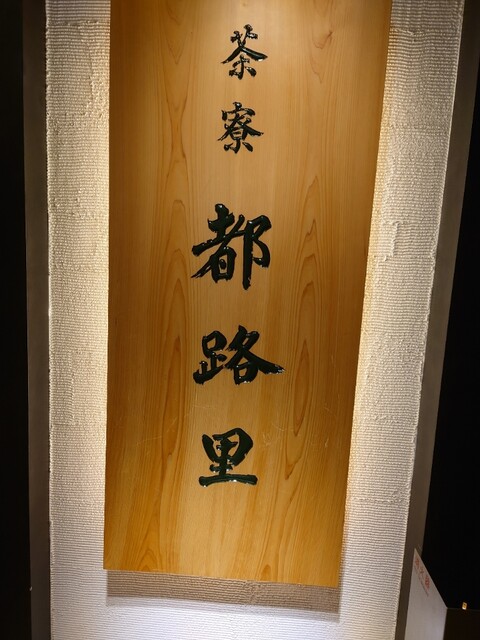 茶寮
都路里